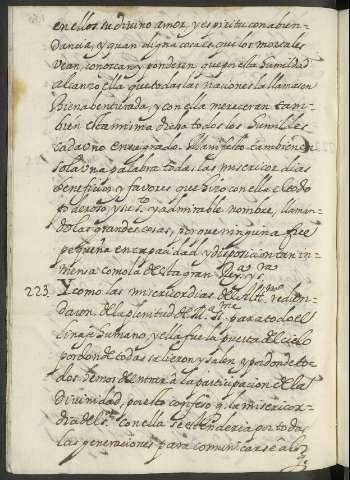 en ellos su divino amor, y espiritu con abun-
dancia, y quan digna cosa es, que los mortales
vean, conozcan, y ponderen que por esta humildad
alcanzo ella que todas las naciones la llamasen
Bienabenturada, y con ella mereceran tam-
bién esta misma dicha todos los humildes
cada uno en su grado. Manifesto tambien en
sola una palabra todas las misericordias
beneficios y favores que hizo con ella el todo
poderoso, y su sto. y admirable nombre, llaman-
dolas grandes cosas, porque ninguna fue
pequeña en capacidad, y disposicion tan in-
mensa como la de esta gran Reyna, y sra
223 Y como las misericordias del Altmo. redun-
daron de la plenitud de Ma. sma. para todo el
linaje humano, y ella fue la puerta del cielo
por donde todas salieron y salen, y por donde to-
dos hemos de entrar à la participacion de la
Divinidad, por esto confeso q. la misericor-
dia del sr. con ella se estenderia por todas
las generaciones para comunicarse à los